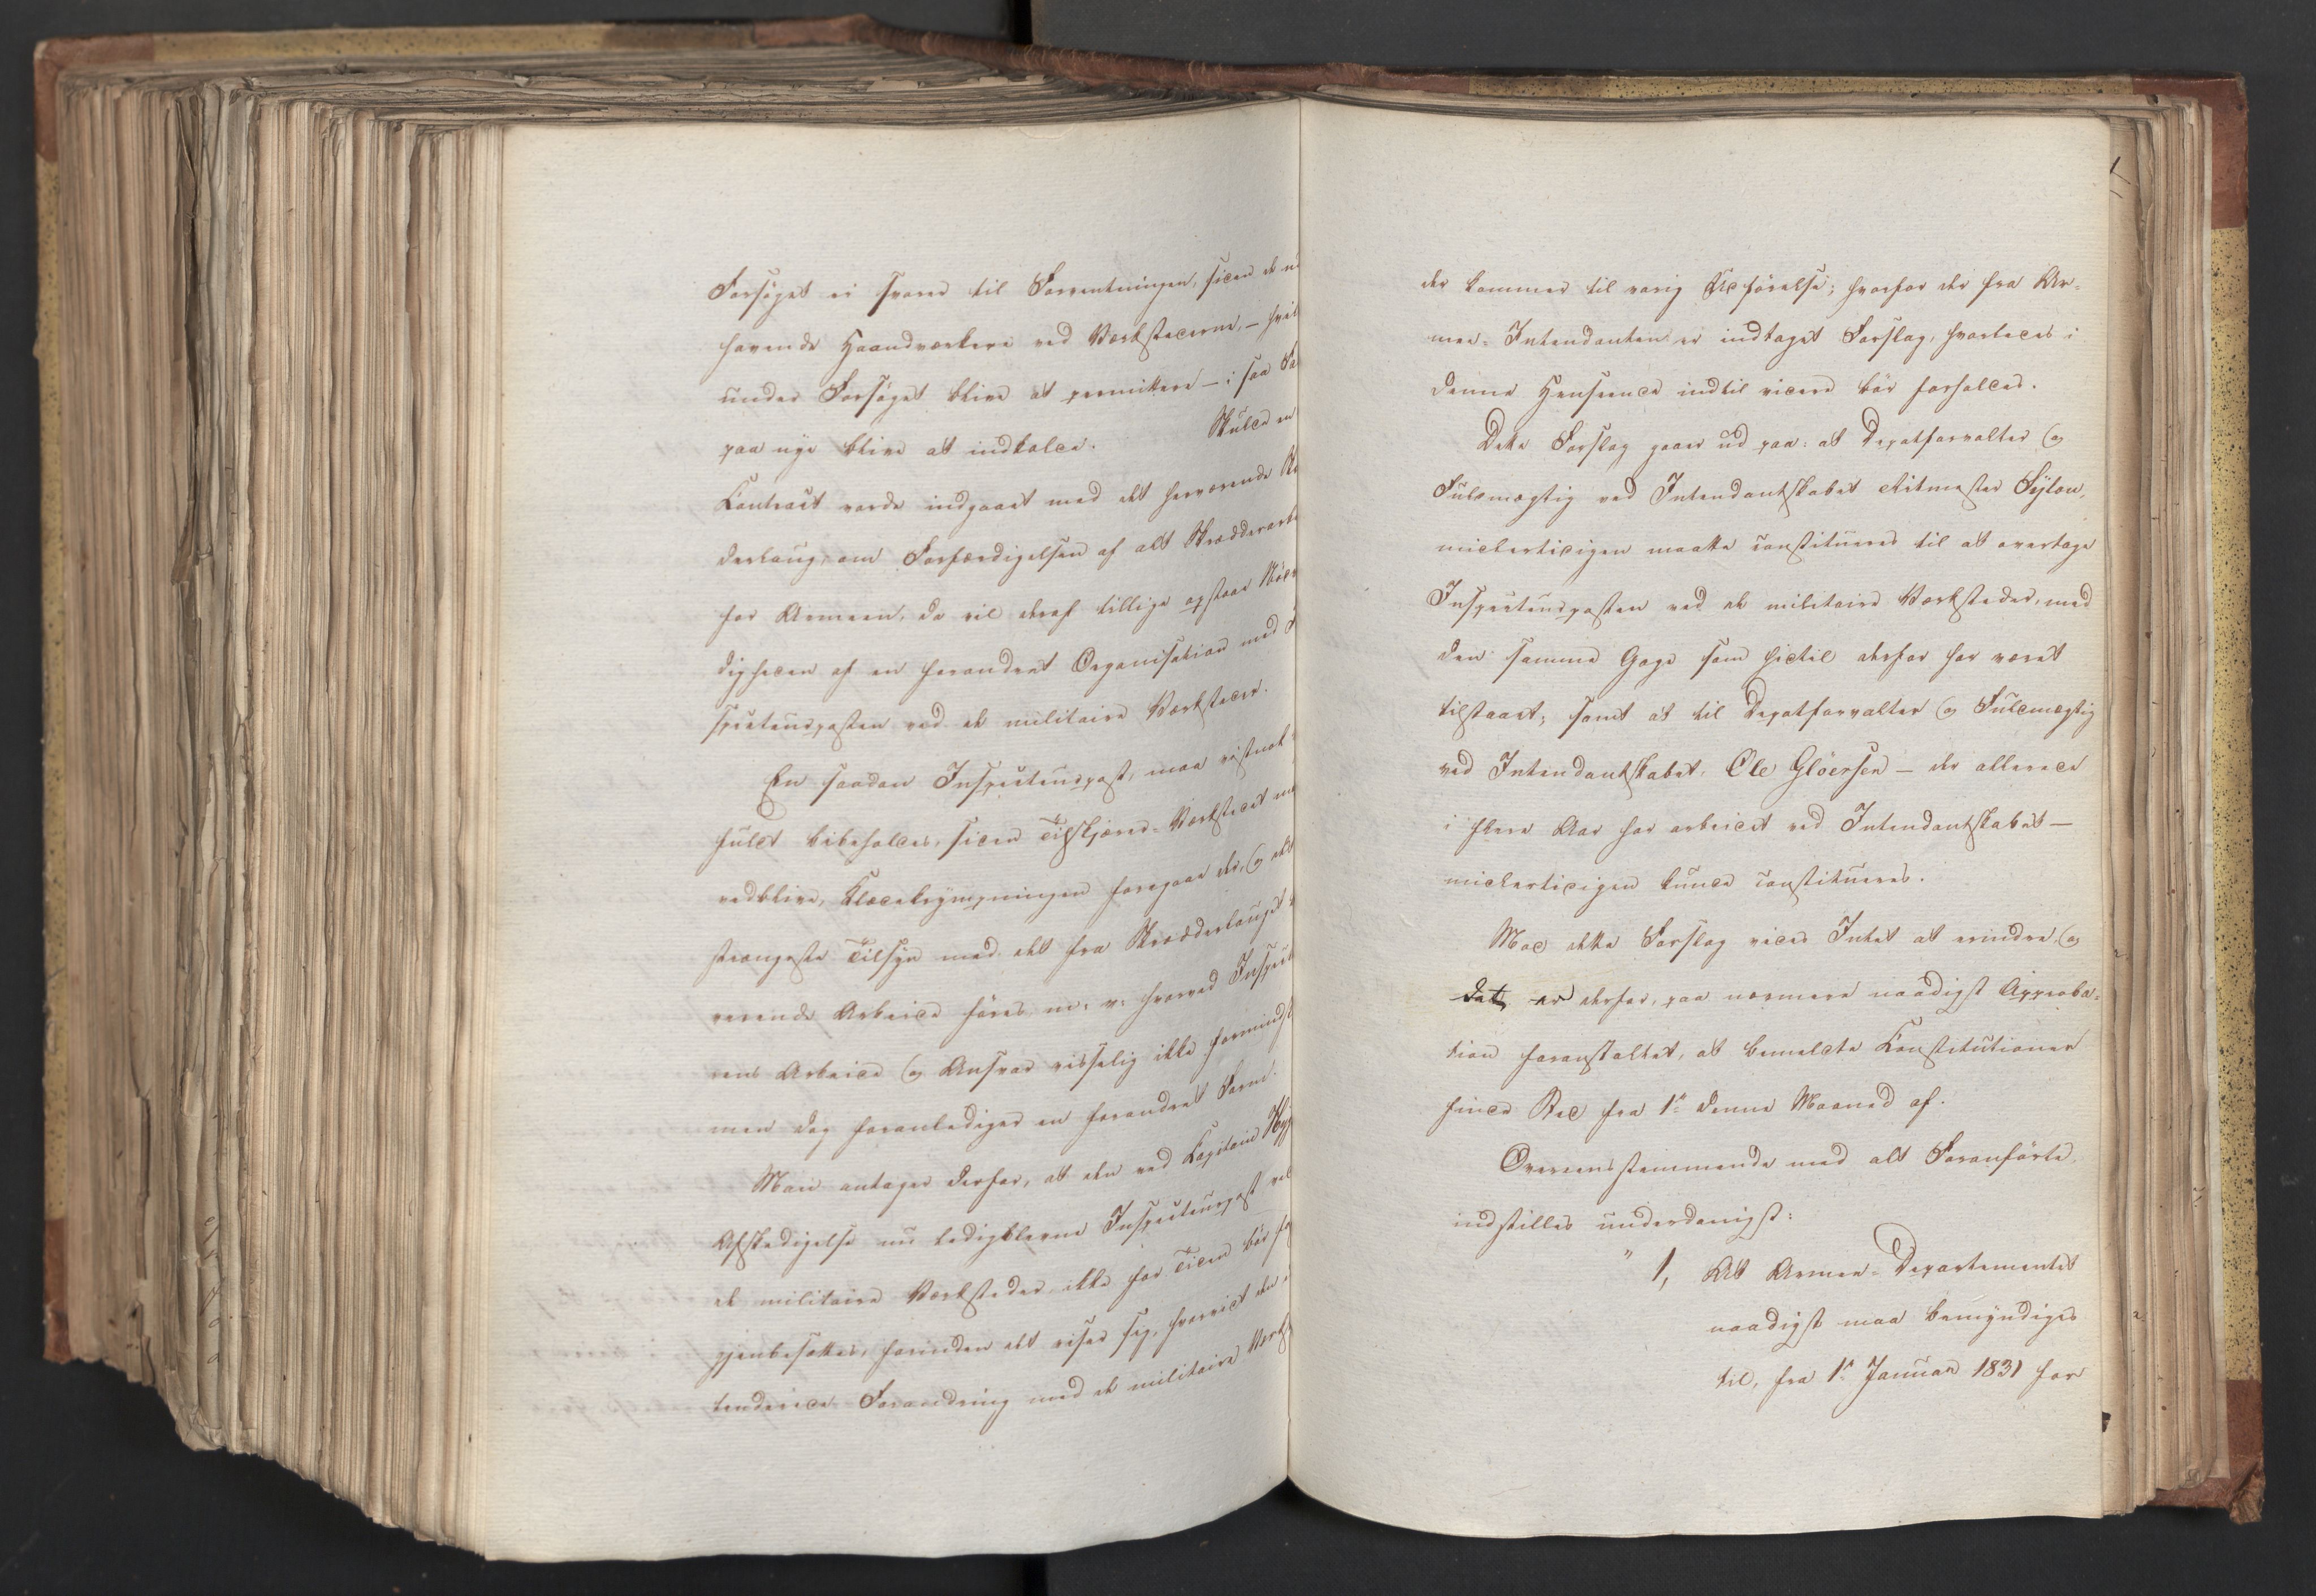 Forsøget ei svare til Forventningen, siden de n
havende Haandværkere ved Værkstederne, – hvil
under Forsøget blive at permittere – i saa Fa
paa nye blive at indkalde. Skulde en
Contract vorde indgaaet med det herværende
derlaug, om Forfærdigelsen af alt Skrædderarb
for Armeen, da vil deraf tillige opstaae Nød
digheden af en forandret Organisation med
specteurposten ved de militaire Værksteder.
En saadan Inspecteurpost, maa vistnok
fuldt bibeholdes, siden Tilskjærer-Værkstedet
vedblive, Klædekrympningen foregaae der, og det
strængeste Tilsyn med det fra Skrædderlauget
rende Arbeide føres m: v: hvorved Inspect
rens Arbeide og Ansvar visselig ikke formindsk
men dog foranlediges en forandret Form.
Man antager derfor, at den ved Capitain
Afskedigelse nu ledigblevne Inspecteurpost ved
de militaire Værksteder ikke for Tiden bør
gjenbesættes, forinden det viser sig, hvorvidt den
tenderede Forandring med de militaire Værks
der kommer til varig Udførelse; hvorfor der fra Ar=
mee-Intendanten er indtaget Forslag, hvorledes i
denne Henseende indtil videre bør forholdes.
Dette Forslag gaaer ud paa: at Depotforvalter og
Fuldmægtig ved Intendantskabet Ritmester Sylow,
midlertidigen maatte constitueres til at overtage
Inspecteurposten ved de militaire Værksteder, med
den samme Gage som hidtil derfor har været
tilstaaet; samt at til Depotforvalter og Fuldmægtig
ved Intendantskabet, Ole Gløersen – der allerede
i flere Aar har arbeidet ved Intendantskabet –
midlertidigen kunde constitueres.
Mod dette Forslag vides Intet at erindre, og
det er derfor, paa nærmere naadigst Approba=
tion foranstaltet, at bemeldte Constitutioner
finde Sted fra 1ste denne Maaned af.
Overeensstemmende med alt Foranførte
indstilles underdanigst:
" 1, At Armee-Departementet
naadigst maa bemyndiges
til, fra 1ste Januar 1831 for